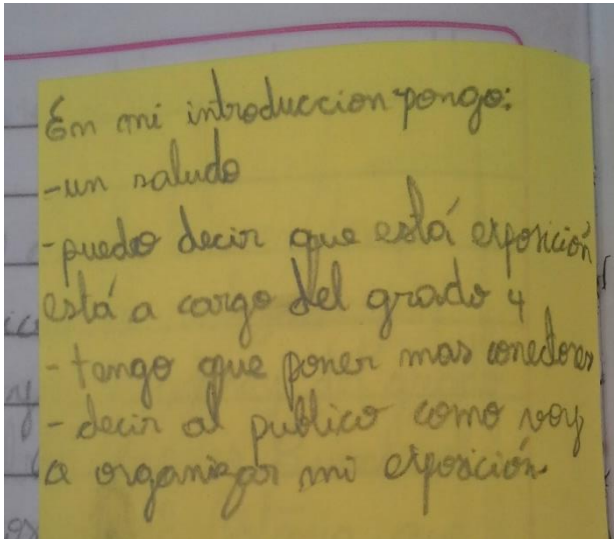 En mi introduccion pongo:
-un saludo
-puedo decir que está exposición
está a cargo del grado 4
- tengo que poner mas conectores
- decir al publico como voy
a organizar mi exposición.